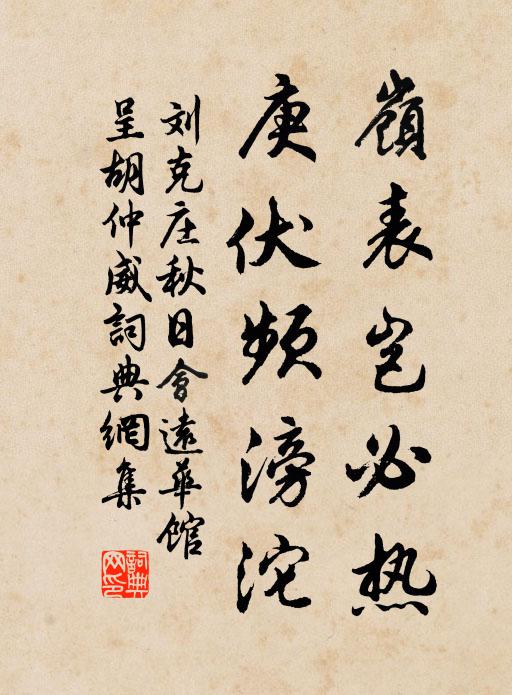 嶺表岂必热
庚伏频滂沱
刘克庄秋日會遠華馆
呈胡仲威詞典網集
詞典网印